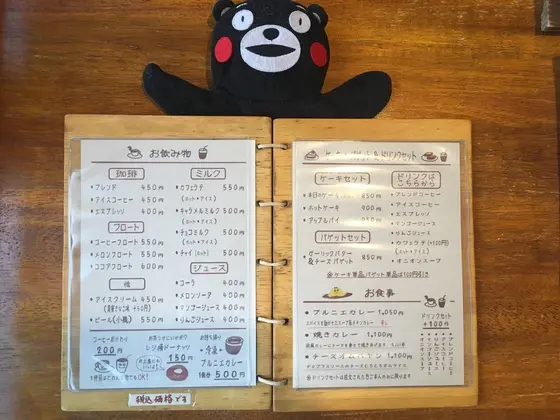 お飲み物
珈琲
・ブレンド 450円
・アイスコーヒー 450円
・エスプレッソ 400円
フロート
・コーヒーフロート 550円
・メロンフロート 500円
・ココアフロート 600円
他
・アイスクリーム 450円
・ビール(小瓶) 550円
コーヒーおかわり
200円
レジ横ドーナッツ
150円
ミルク
・カフェラテ 550円
(ホット・アイス)
・キャラメルミルク 500円
(ホット・アイス)
・チョコミルク 500円
(ホット・アイス)
・チャイ(ホット) 500円
ジュース
・コーラ 400円
・メロンソーダ 400円
・マンゴージュース 400円
・りんごジュース 400円
お持ち帰り
冷凍
アルニエカレー
1個 500円
税込価格です
ケーキセット
・本日のケーキ 850円
・ホットケーキ 900円
・アップルパイ 850円
バゲットセット
・ガーリックバター 850円
&チーズバゲット
ドリンクは
こちらから
・ブレンドコーヒー
・アイスコーヒー
・エスプレッソ
・マンゴージュース
・りんごジュース
・カフェラテ(+100円)
(ホット・アイス)
・オニオンスープ
※ケーキ単品バゲット単品は100円引き
お食事
・アルニエカレー 1,050円
・焼きカレー 1,100円
ドリンクセット
+100円